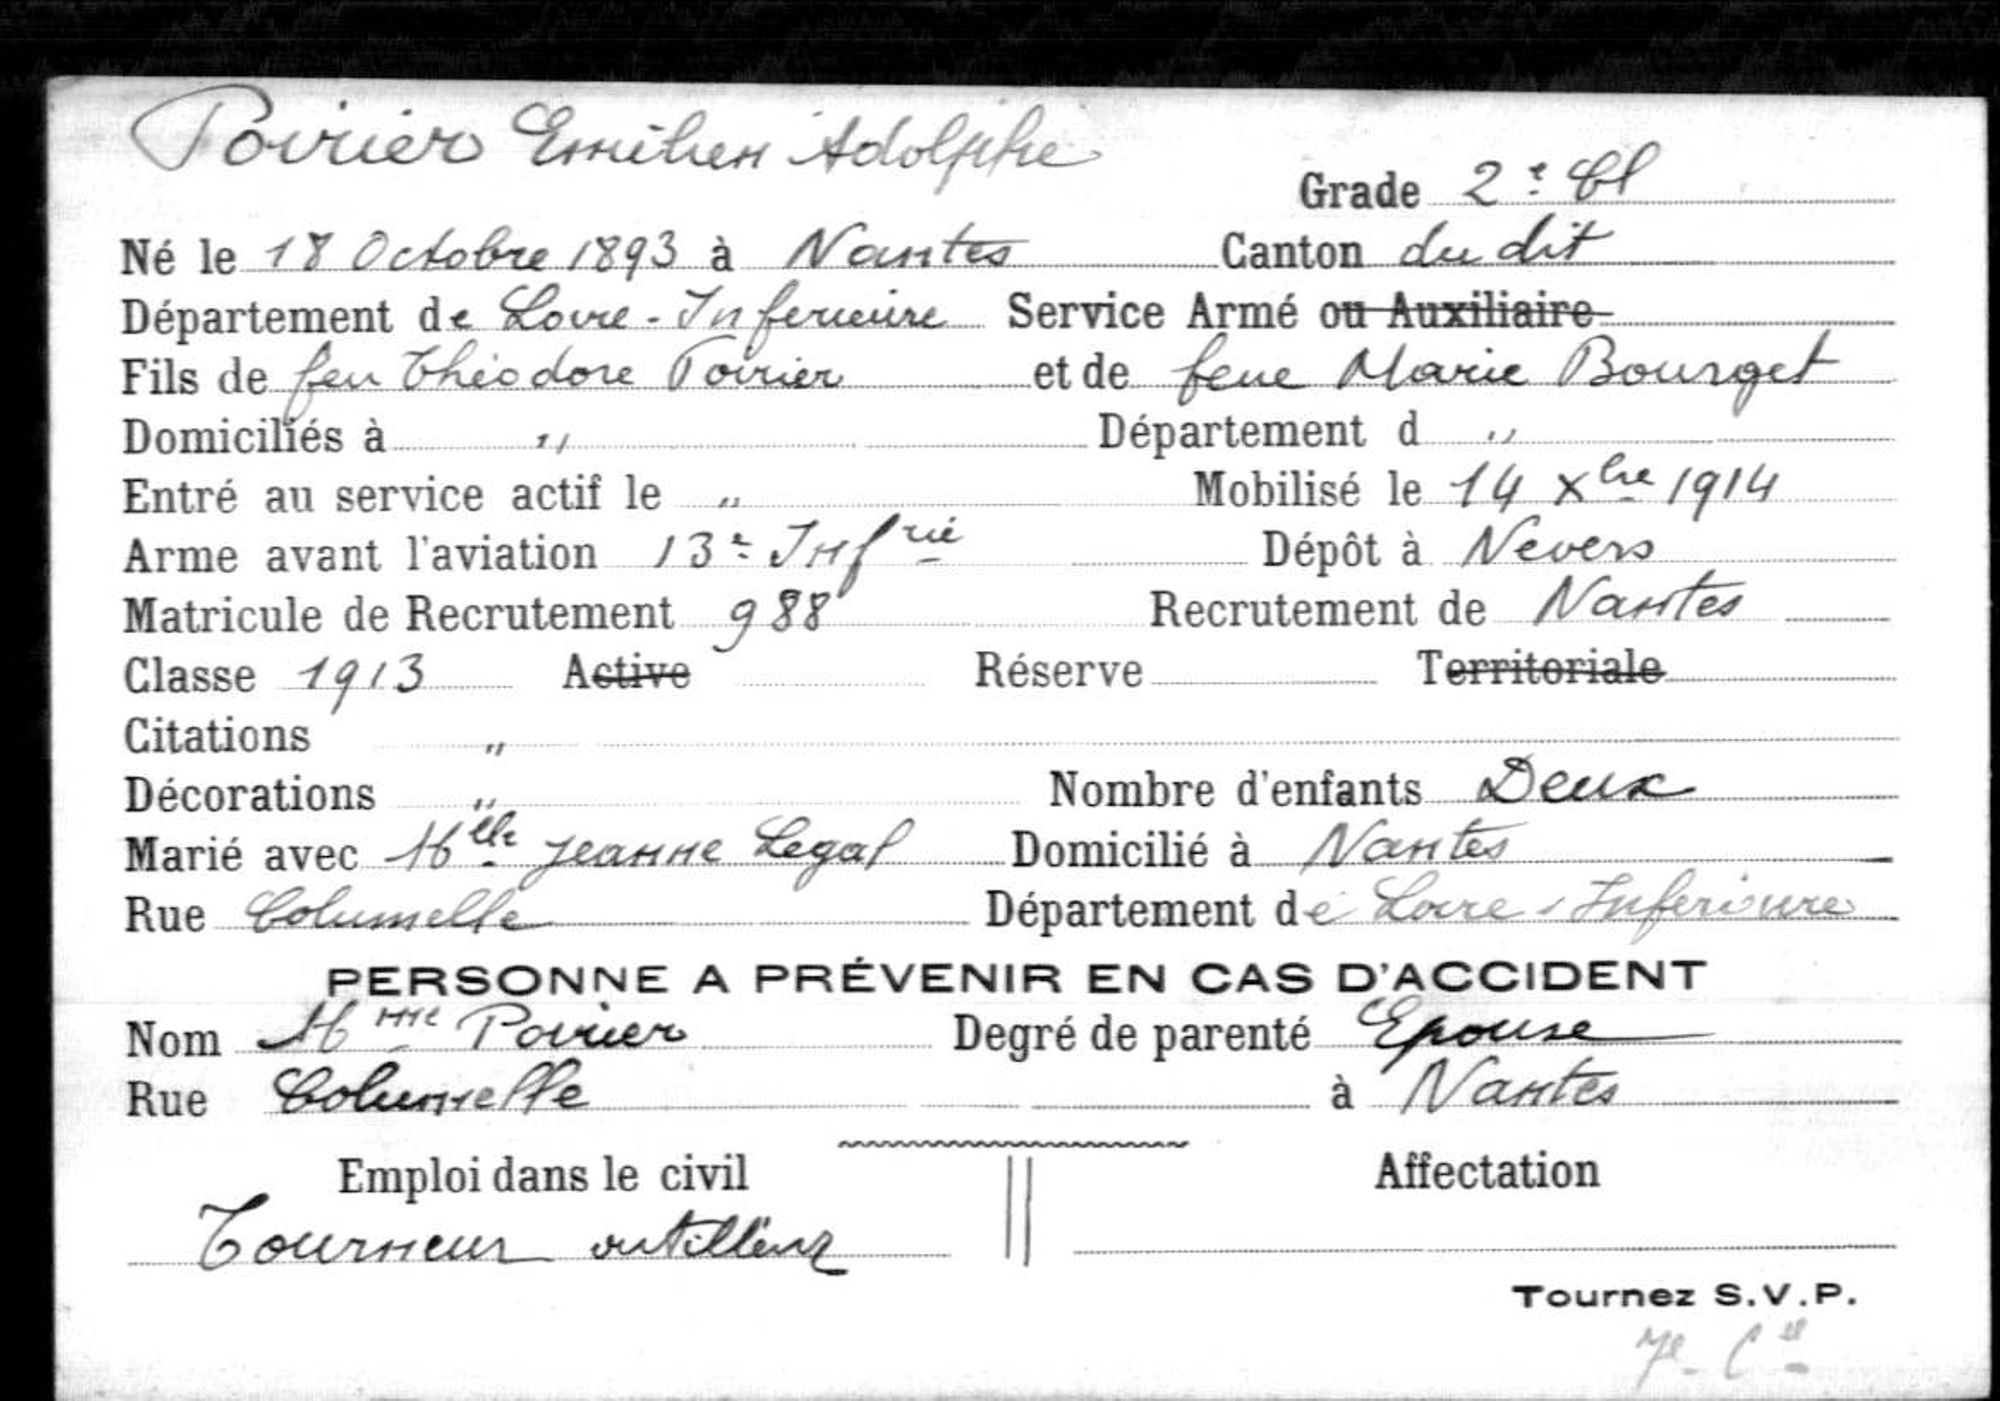 Poirier Emilien Adolphe
Grade 2e Cl
Né le 18 Octobre 1893 à Nantes Canton du dit
Département de Loire-Inferieure Service Armé ou Auxiliaire
Fils de feu Théodore Poirier et de feue Marie Bourget
Domiciliés à " Département d "
Entré au service actif le " Mobilisé le 14 Xbre 1914
Arme avant l'aviation 13e Infrie Dépôt à Nevers
Matricule de Recrutement 988 Recrutement de Nantes
Classe 1913 Active Réserve Territoriale
Citations "
Décorations " Nombre d'enfants Deux
Marié avec Melle Jeanne Legal Domicilié à Nantes
Rue Columelle Département de Loire-Inferieure
PERSONNE A PRÉVENIR EN CAS D'ACCIDENT
Nom Mme Poirier Degré de parenté Epouse
Rue Columelle à Nantes
Emploi dans le civil Affectation
Tourneur outilleur
Tournez S.V.P.
7e Cie